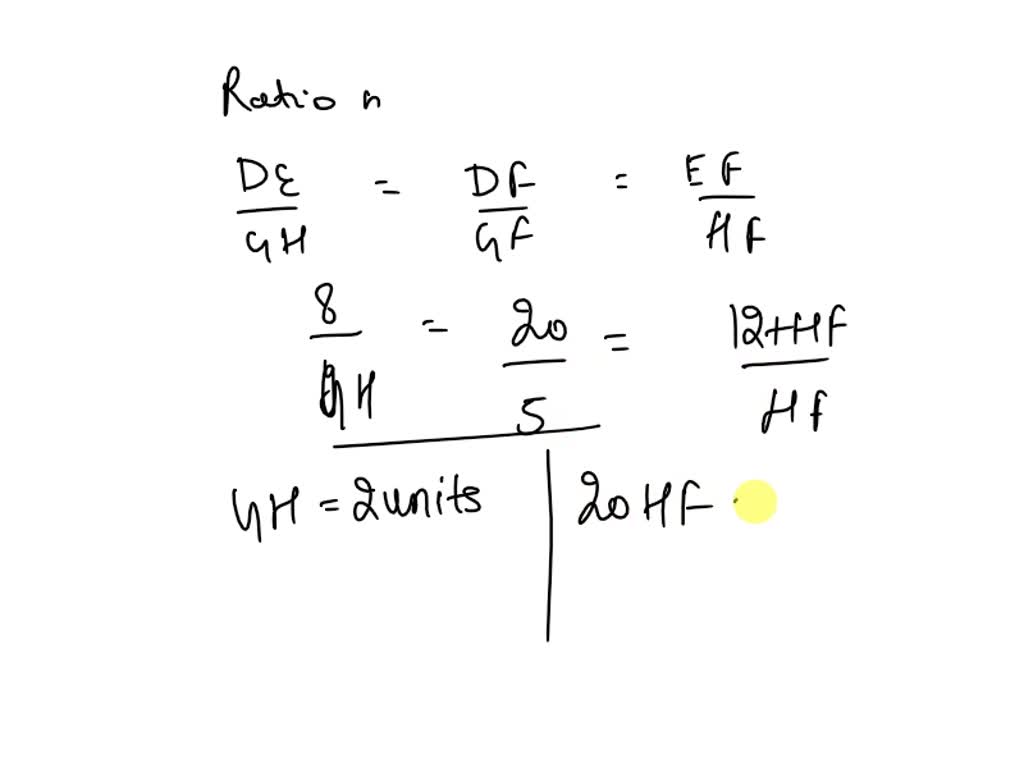 Ratio n
DE/GH = DF/GF = EF/HF
8/GH = 20/5 = 12+HF/HF
GH = 2 units | 20 HF